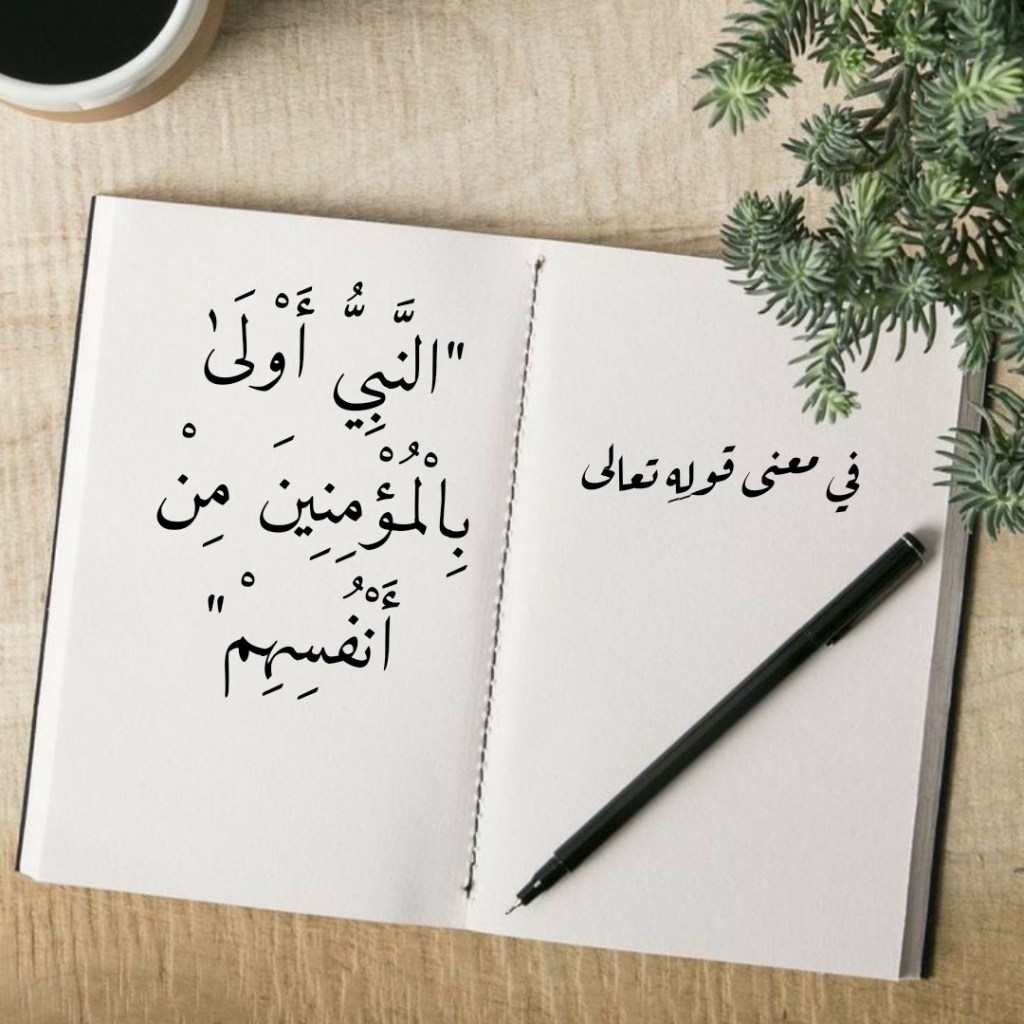 في معنى قولِهِ تعالى
"النَّبِيُّ أَوْلَىٰ
بِالْمُؤْمِنِينَ مِنْ
أَنْفُسِهِمْ"